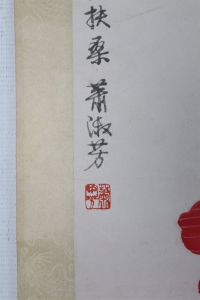 扶桑 萧淑芳